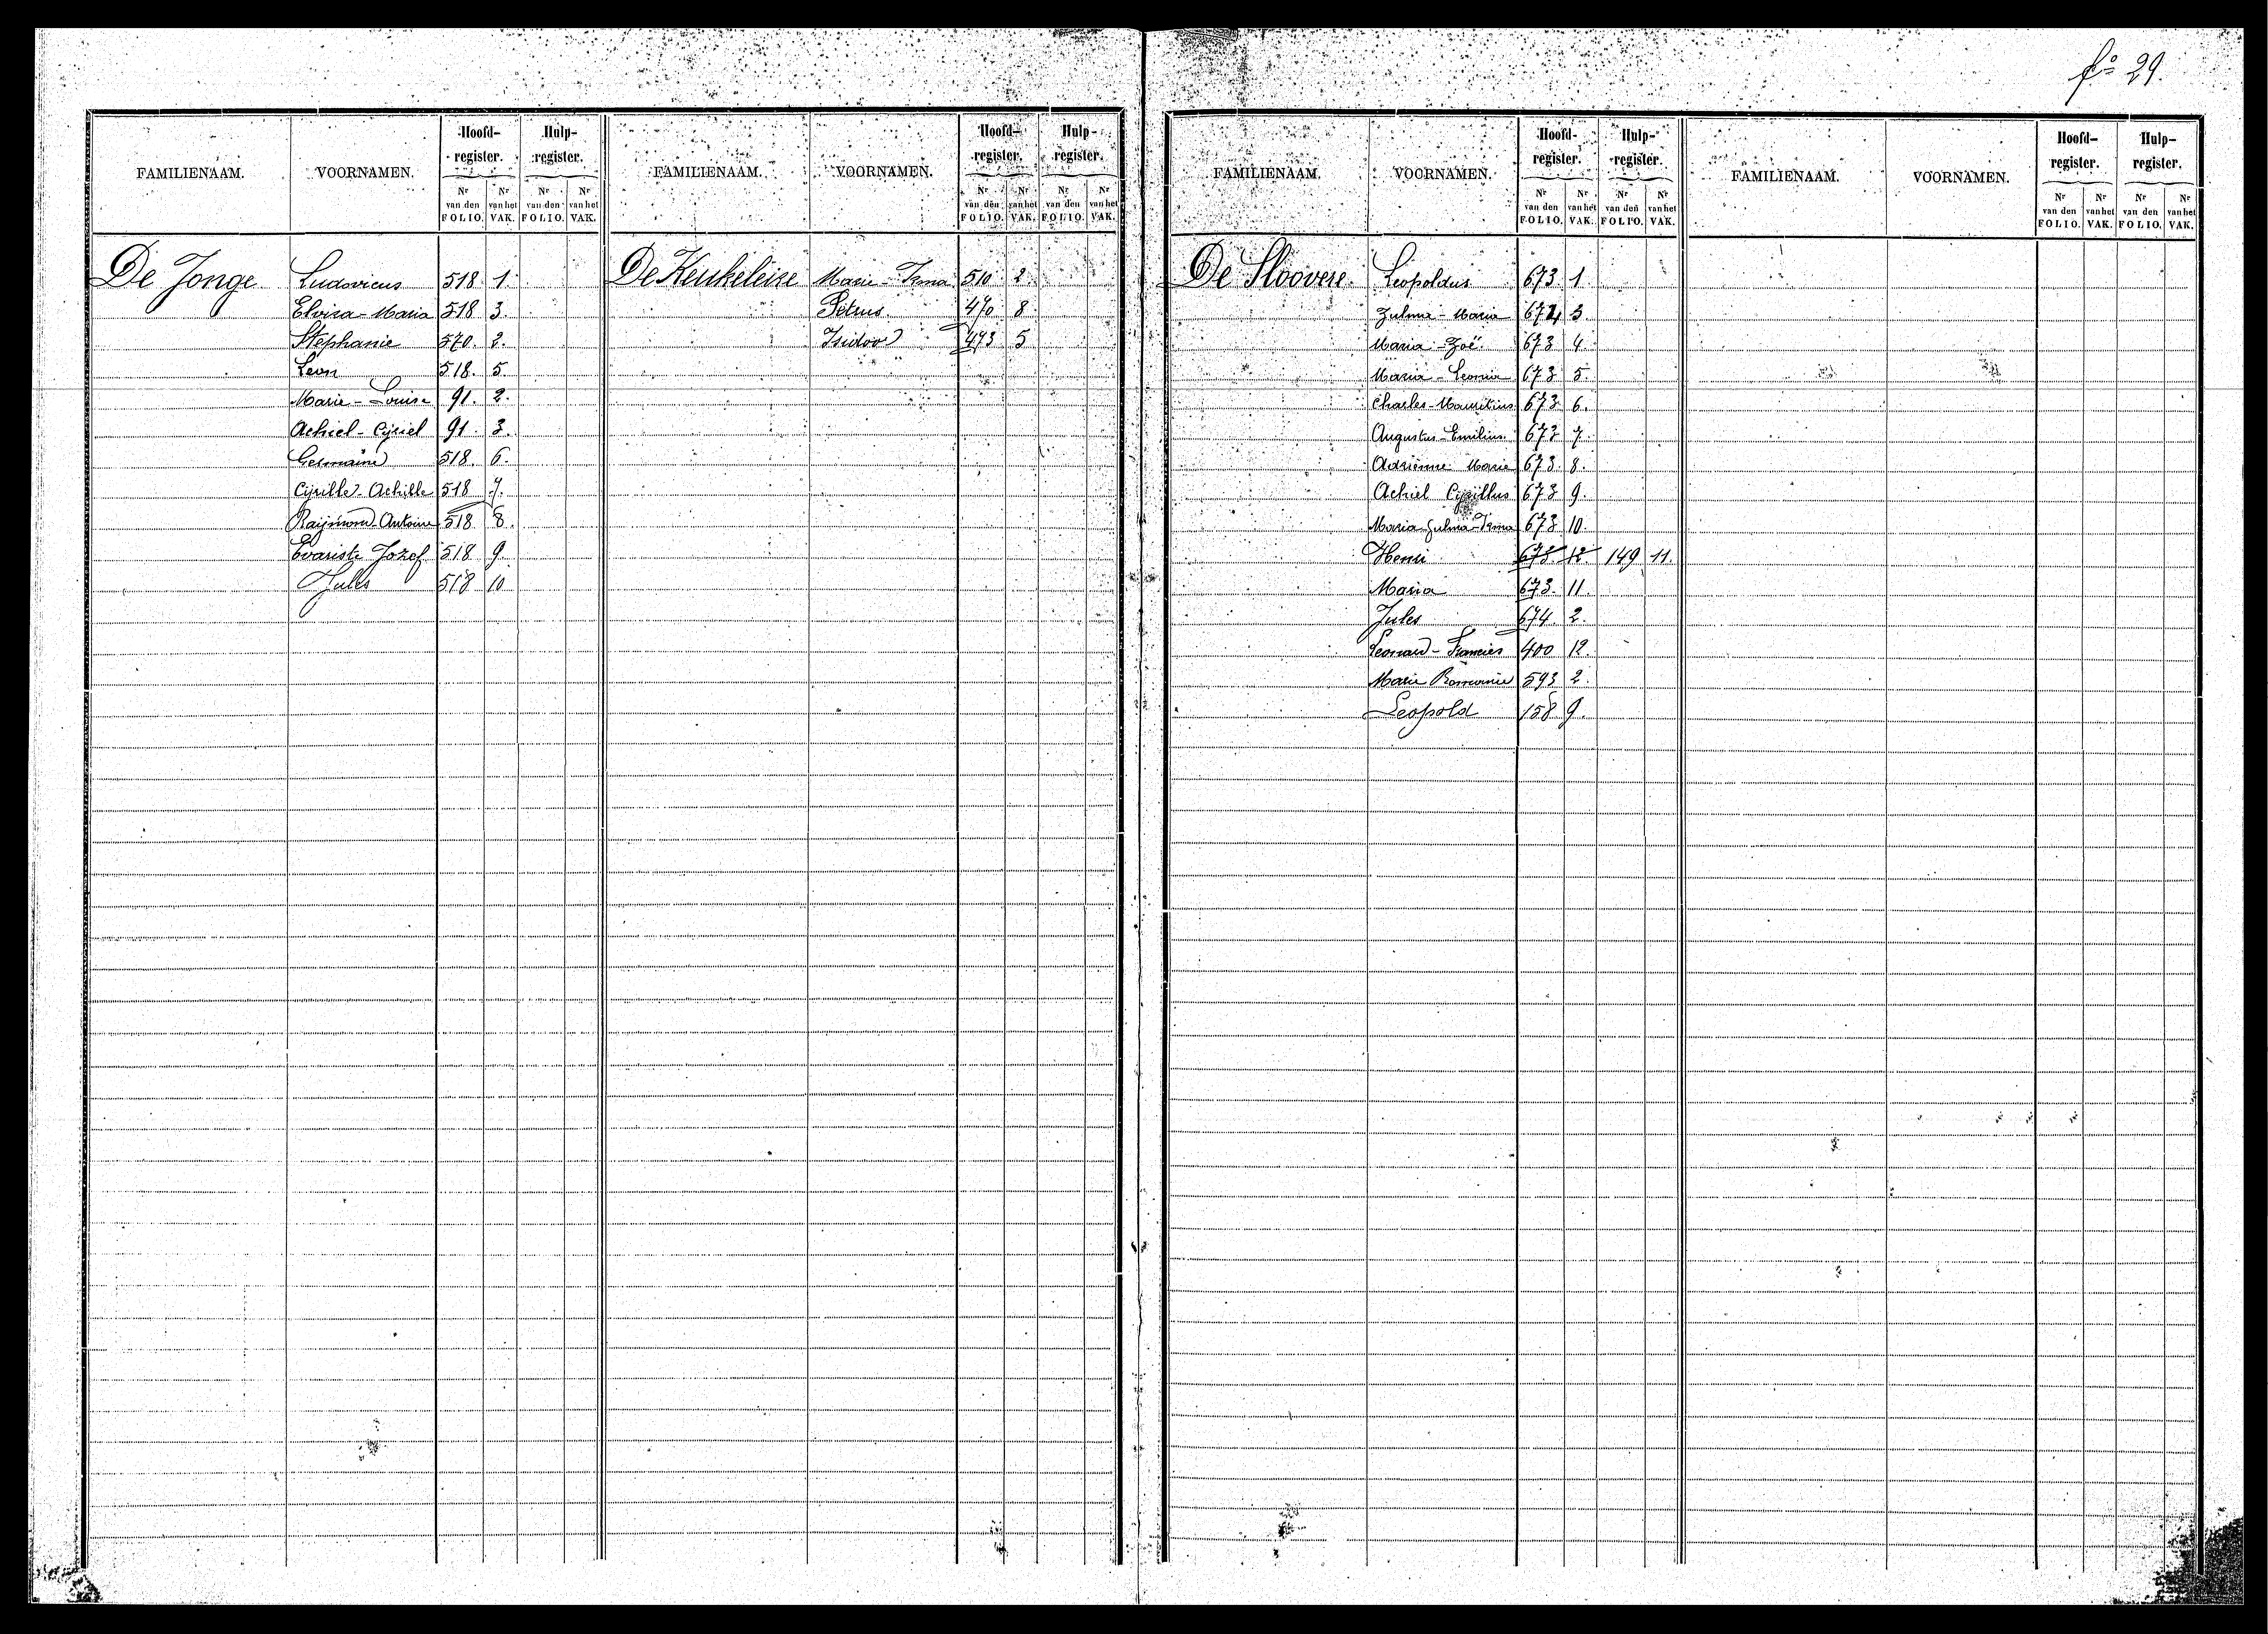 fo 29.
FAMILIENAAM. VOORNAMEN. Hoofd-register. Hulp-register.
Nr van den FOLIO. Nr van het VAK. Nr van den FOLIO. Nr van het VAK.
De Jonge Ludovicus 518 1.
Elvira-Maria 518 3.
Stephanie 570. 2.
Leon 518. 5.
Marie-Louise 91. 2.
Achiel-Cyriel 91. 3.
Germaine 518. 6.
Cyrille-Achille 518 7.
Raymond-Antoine 518 8.
Evariste Jozef 518 9.
Jules 518 10
FAMILIENAAM. VOORNAMEN. Hoofd-register. Hulp-register.
Nr van den FOLIO. Nr van het VAK. Nr van den FOLIO. Nr van het VAK.
De Keukeleire Marie-Irma 510 2.
Petrus 470 8
Isidoor 473 5
FAMILIENAAM. VOORNAMEN. Hoofd-register. Hulp-register.
Nr van den FOLIO. Nr van het VAK. Nr van den FOLIO. Nr van het VAK.
De Sloovere. Leopoldus 673 1.
Zulma-Maria 674 3.
Maria-Zoë. 673 4.
Maria-Leonia 673 5.
Charles-Mauritius 673 6.
Augustus-Emilius. 673 7.
Adrienne Marie 673. 8.
Achiel Cyrillus 673 9.
Maria-Zulma-Irma 673 10.
Henri 673. 12. 149 11.
Maria 673. 11.
Jules 674 2.
Leonard-Francies 400 12.
Marie Romanie 593 2.
Leopold 158 9.
FAMILIENAAM. VOORNAMEN. Hoofd-register. Hulp-register.
Nr van den FOLIO. Nr van het VAK. Nr van den FOLIO. Nr van het VAK.